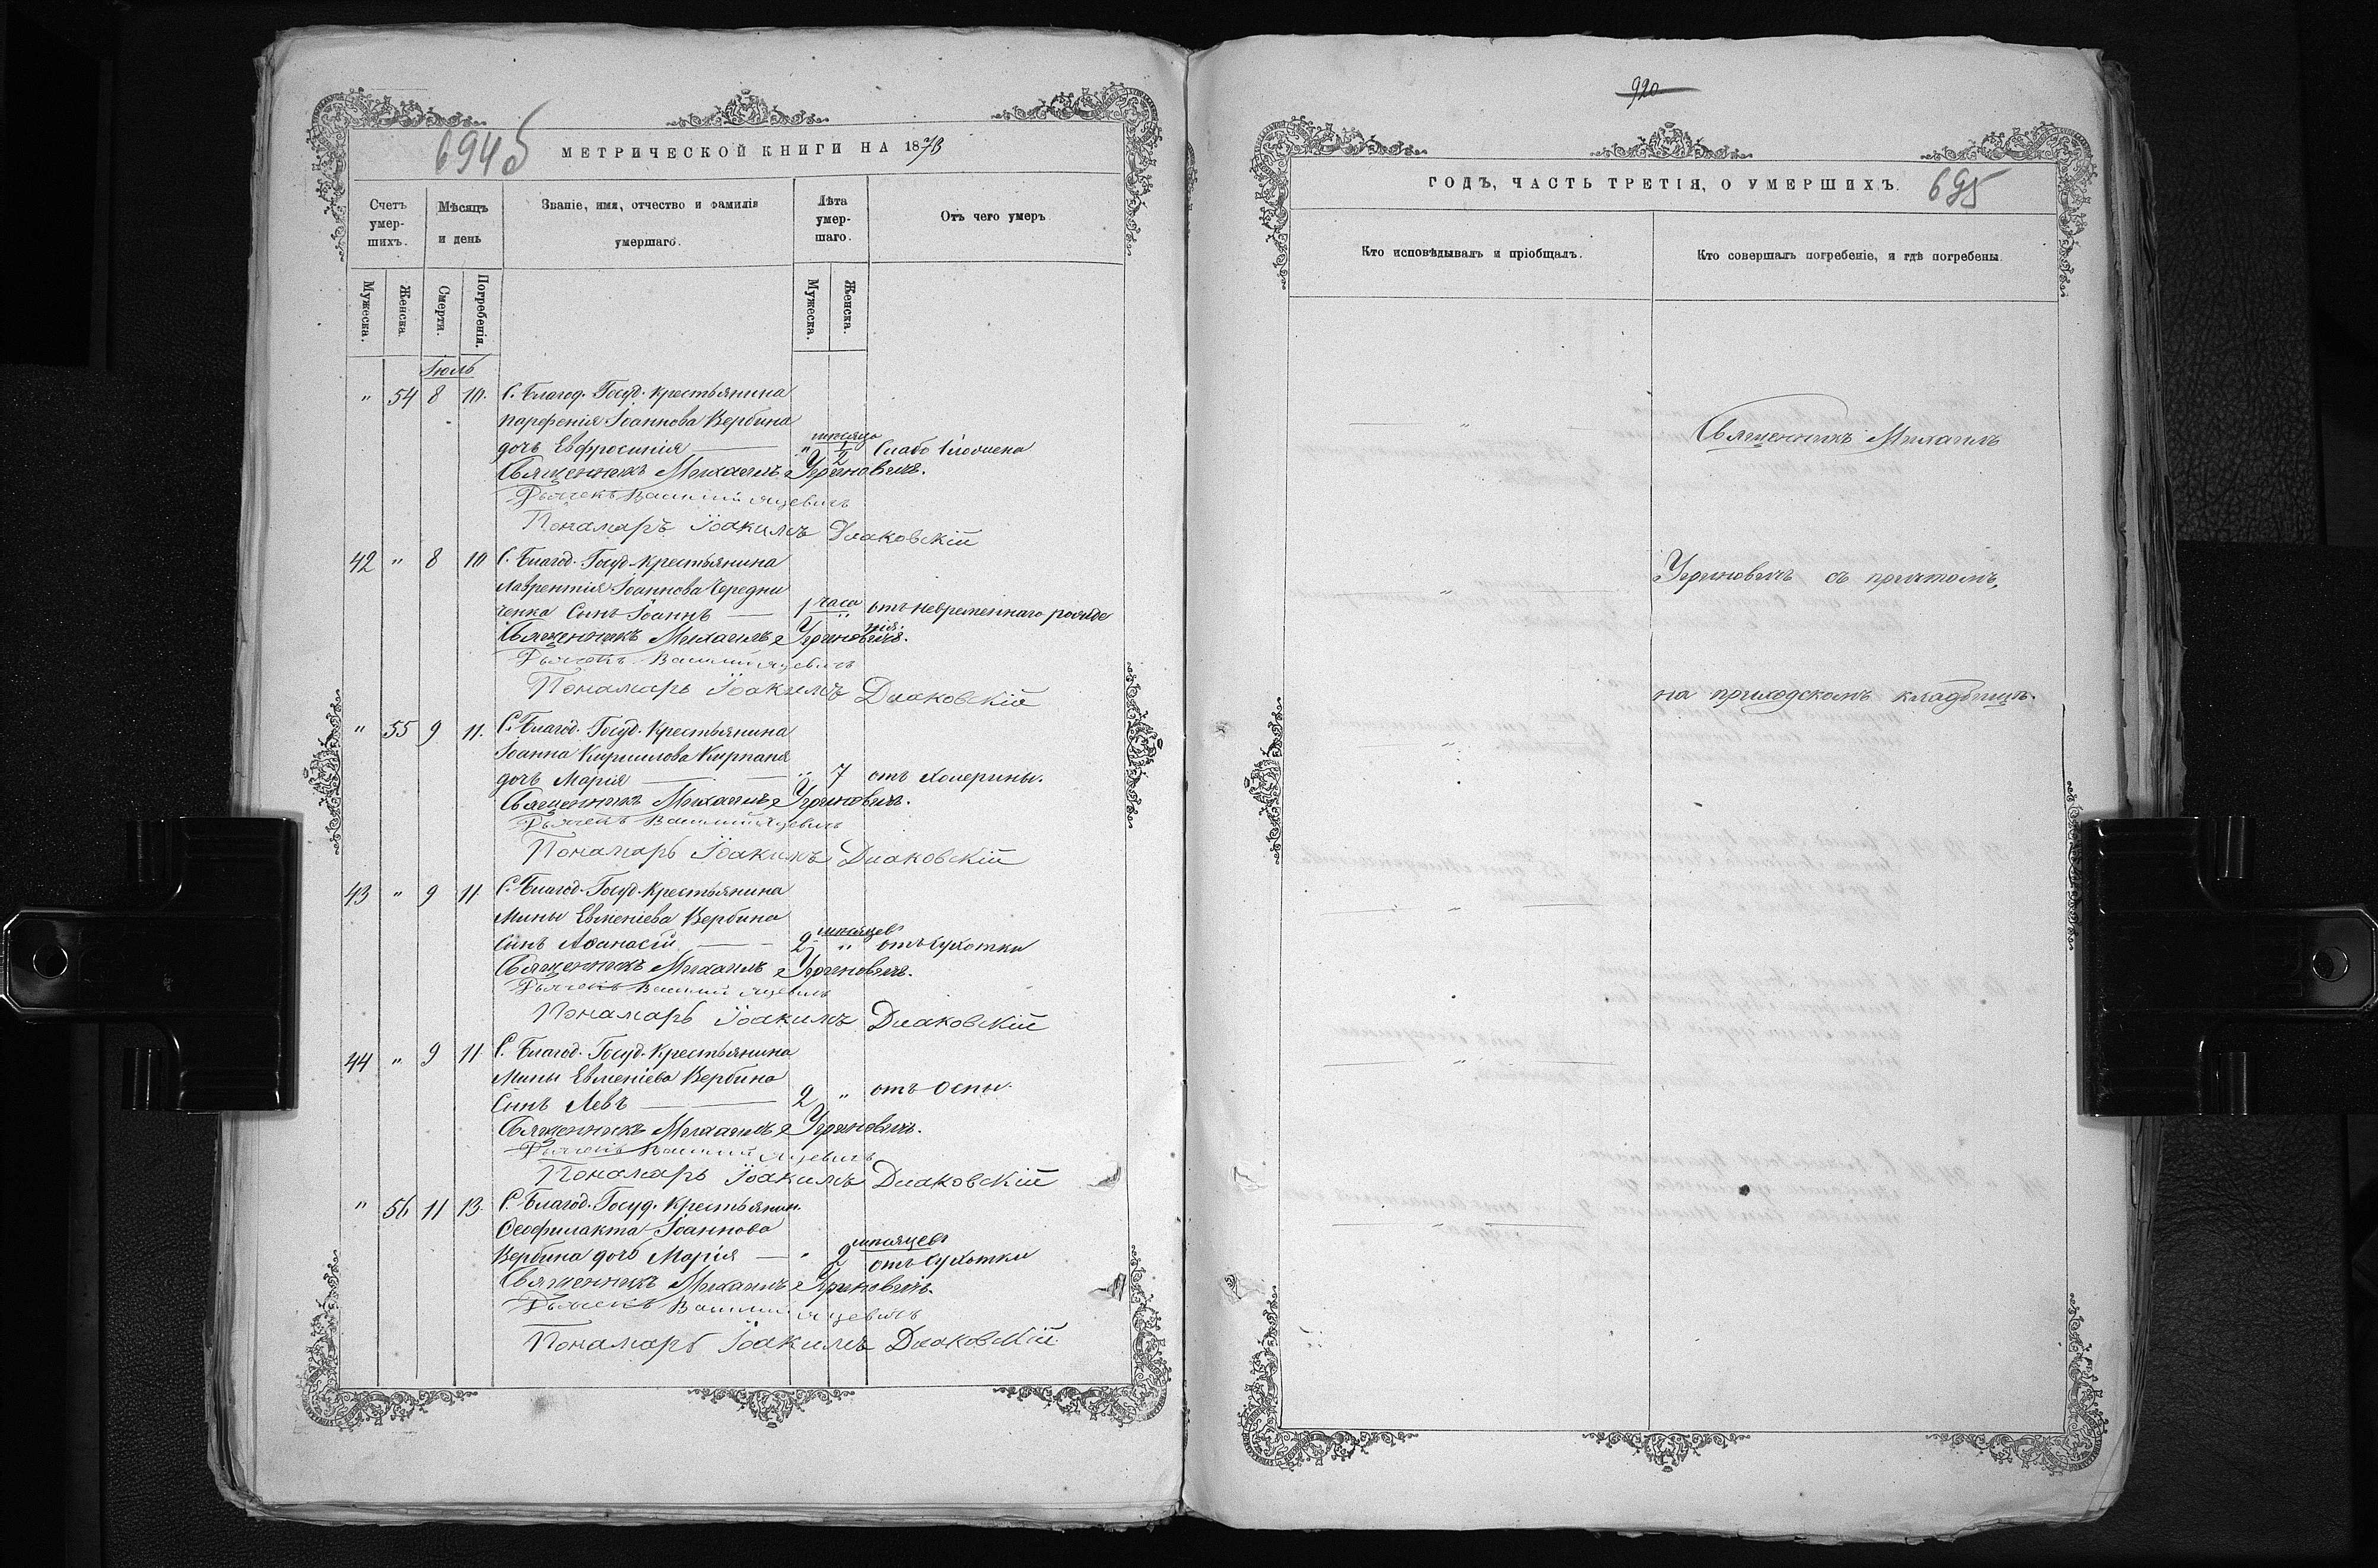 694б
МЕТРИЧЕСКОЙ КНИГИ НА 1873
Счетъ умер-шихъ. Мѣсяцъ и день Званіе, имя, отчество и фамилія умершаго. Лѣта умер-шаго. Отъ чего умеръ
Мужеска. Женска Смерти. Погребенія. Мужеска. Женска.
Іюль
" 54 8 10. С. Благод. Госуд. Крестьянина
Парфенія Іоаннова Вербина
дочь Евфросинія — " мѣсяца 1/2 Слабо сложена
Священникъ Михаилъ Угриновичъ.
Дьячекъ Василій Яцевичъ
Пономарь Іоакимъ Диаковскій
42 " 8 10 С. Благод. Госуд. Крестьянина
Лаврентія Іоаннова Чередни
ченка Сынъ Іоаннъ — 1 часа " отъ невременнаго рожде
нія.
Священникъ Михаилъ Угриновичъ.
Дьячекъ Василій Яцевичъ
Пономарь Іоакимъ Диаковскій
" 55 9 11. С. Благод. Госуд. Крестьянина
Іоанна Кириллова Кирпаня
дочь Марія — " 7 отъ холерины.
Священникъ Михаилъ Угриновичъ.
Дьячекъ Василій Яцевичъ
Пономарь Іоакимъ Диаковскій
43 " 9 11. С. Благод. Госуд. Крестьянина
Мины Евменіева Вербина
Сынъ Аѳанасій — 2 мѣсяцев " отъ сухотки
Священникъ Михаилъ Угриновичъ.
Дьячекъ Василій Яцевичъ
Пономарь Іоакимъ Диаковскій
44 " 9 11. С. Благод. Госуд. Крестьянина
Мины Евменіева Вербина
Сынъ Левъ — 2 " отъ Оспы.
Священникъ Михаилъ Угриновичъ.
Дьячекъ Василій Яцевичъ
Пономарь Іоакимъ Диаковскій
" 56 11 13. С. Благод. Госуд. Крестьянин.
Ѳеофилакта Іоаннова
Вербина дочь Марія — " 2 мѣсяцев отъ сухотки
Священникъ Михаилъ Угриновичъ.
Дьячекъ Василій Яцевичъ
Пономарь Іоакимъ Диаковскій.
920
ГОДЪ, ЧАСТЬ ТРЕТІЯ, О УМЕРШИХЪ.
695
Кто исповѣдывалъ и пріобщалъ. Кто совершалъ погребеніе, и гдѣ погребены.
— " — Священникъ Михаилъ
— " — Угриновичъ съ причтомъ,
" на приходскомъ кладбищѣ.
— " —
— " —
— " —